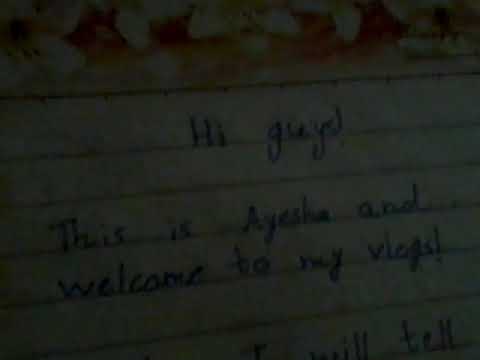 Hi guys!
This is Ayesha and
welcome to my vlogs!
I will tell